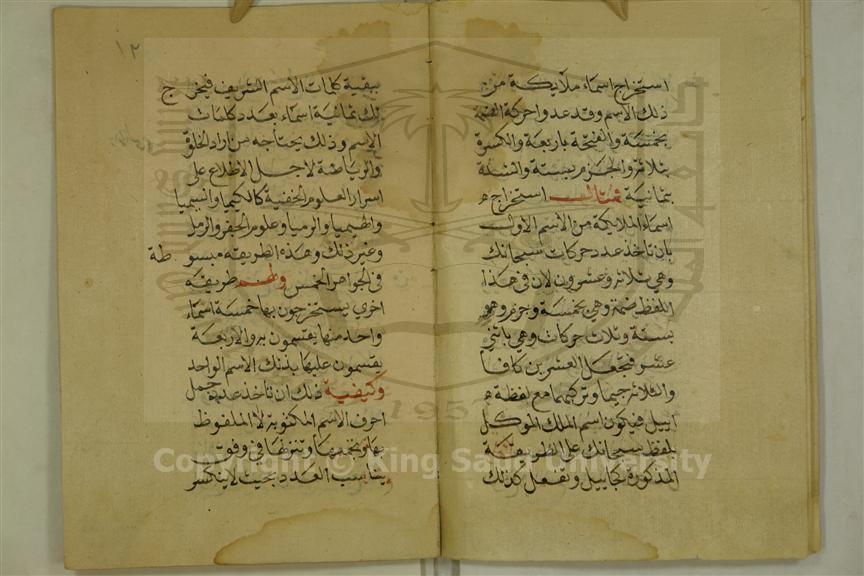 استخراج اسماء ملايكة من
ذلك الاسم وقد عدوا حركة الضمة
بخمسة والفتحة باربعة والكسرة
بثلاثة والجزم بستة والشدة
بثمانية فمثال استخراج
اسماء الملايكة من الاسم الاول
بان تاخذ عدد حركات سبحانك
وهي ثلاثة وعشرون لان في هذا
اللفظ ضمة وهي بخمسة وجزم وهو
بستة وثلاث حركات وهي باثني
عشر فتجعل العشرين كافا
والثلاثة جيما وتركبهما مع لفظة
اييل فيكون اسم الملك الموكل
بلفظ سبحانك على الطريقة
المذكورة كجاييل وتفعل كذلك
١٢
ببقية كلمات الاسم الشريف فيخرج
لك ثمانية اسماء بعدد كلمات
الاسم وذلك يحتاجه من اراد الخلوة
والرياضة لاجل الاطلاع على
اسرار العلوم الخفية كالكيميا والسيميا
والهيميا والريميا وعلوم الجفر والرمل
وغير ذلك وهذه الطريقة مبسوطة
في الجواهر الخمس ولهم طريقة
اخرى يستخرجون بها خمسة اسماء
واحد منها يقسمون به والاربعة
يقسمون عليها بذلك الاسم الواحد
وكيفية ذلك ان تاخذ عدد جمل
احرف الاسم المكتوبة لا الملفوظ
بها وتجمعها وتنزلها في وفق
يناسب العدد بحيث لا ينكسر
Copyright © King Saud University
1957